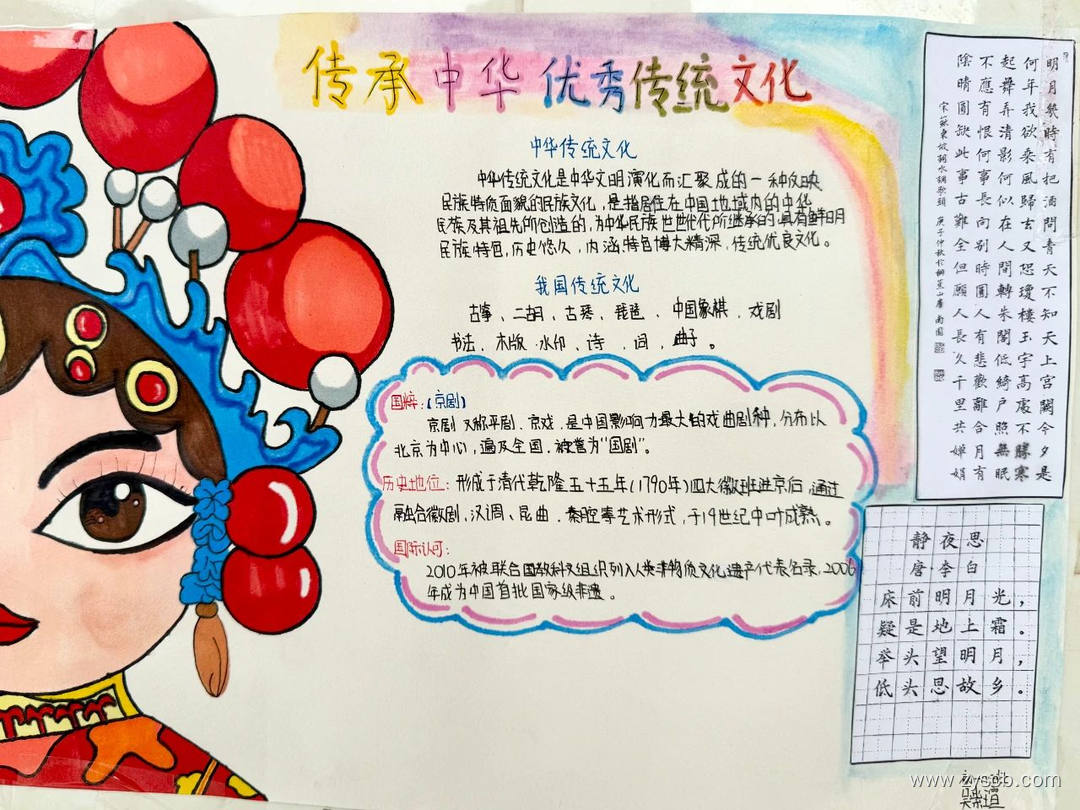 传承中华优秀传统文化
中华传统文化
中华传统文化是中华文明演化而汇聚成的一种反映
民族特质面貌的民族文化，是指居住在中国地域内的中华
民族及其祖先所创造的，为中华民族世世代代所继承的，具有鲜明
民族特色，历史悠久，内涵特色博大精深，传统优良文化。
我国传统文化
古筝、二胡、古琴、琵琶、中国象棋、戏剧
书法、木版·水印、诗、词、曲子。
国粹：(京剧)
京剧又称平剧、京戏，是中国影响力最大的戏曲剧种，分布以
北京为中心，遍及全国，被誉为“国剧”。
历史地位：形成于清代乾隆五十五年(1790年)四大徽班进京后，通过
融合徽剧、汉调、昆曲、秦腔等艺术形式，于19世纪中叶成熟。
国际认可：
2010年被联合国教科文组织列入人类非物质文化遗产代表名录，2006
年成为中国首批国家级非遗。
明月幾時有把酒問青天不知天上宮闕今夕是
何年我欲乘風歸去又恐瓊樓玉宇高處不勝寒
起舞弄清影何似在人間轉朱閣低綺戶照無眠
不應有恨何事長向別時圓人有悲歡離合月有
陰晴圓缺此事古難全但願人長久千里共嬋娟
宋蘇東坡詞水調歌頭
静夜思
唐·李白
床前明月光，
疑是地上霜。
举头望明月，
低头思故乡。